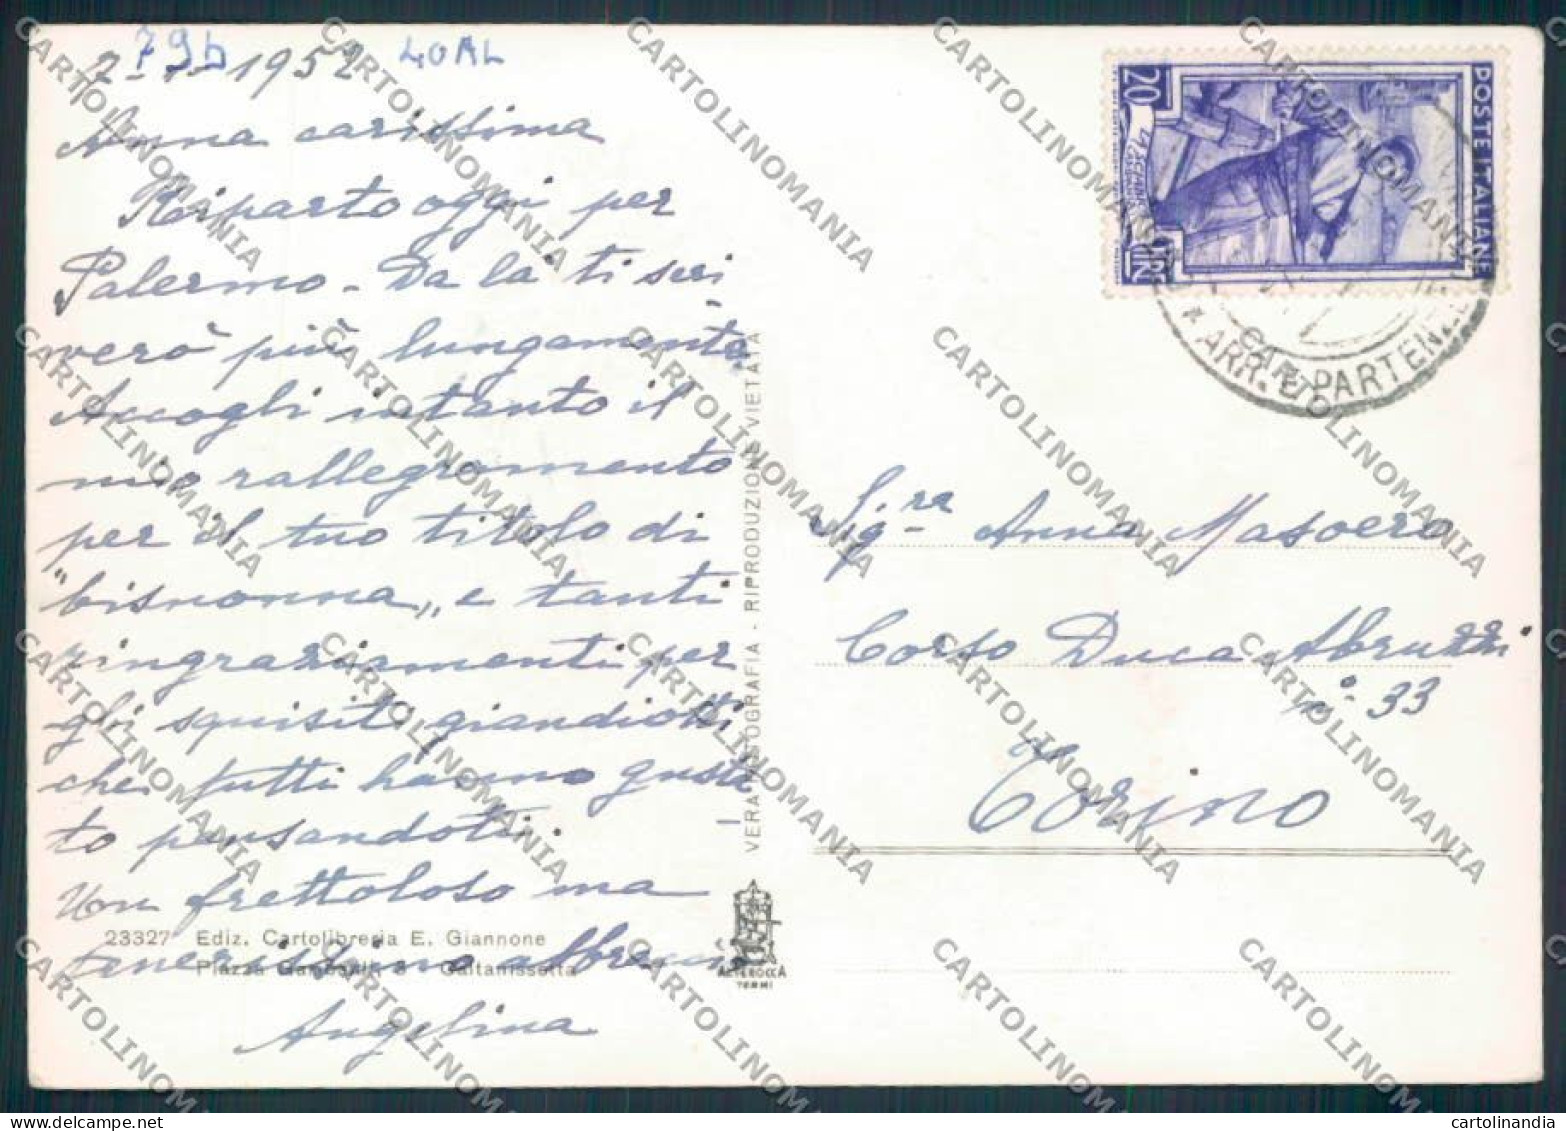 79b 40AL
7-1-1952
Anna carissima
Riparto oggi per
Palermo - Da là ti scri
verò più lungamente.
Accogli intanto il
mio rallegramento
per il tuo titolo di
"bisnonna„ e tanti
ringraziamenti per
gli squisiti giandiotti
che tutti hanno gusta
to pensandoti.
Un frettoloso ma
tenerissimo abbraccio
Angelina
23327 Ediz. Cartolibreria E. Giannone
Piazza Garibaldi, Caltanissetta
VERA FOTOGRAFIA - RIPRODUZIONE VIETATA
ALTEROCCA
TERNI
POSTE ITALIANE
20
LIRE
ARR. E PARTENZE
Sig.ra Anna Masoero
Corso Duca Abruzzi
n° 33
Torino
CARTOLINOMANIA
cartolinandia